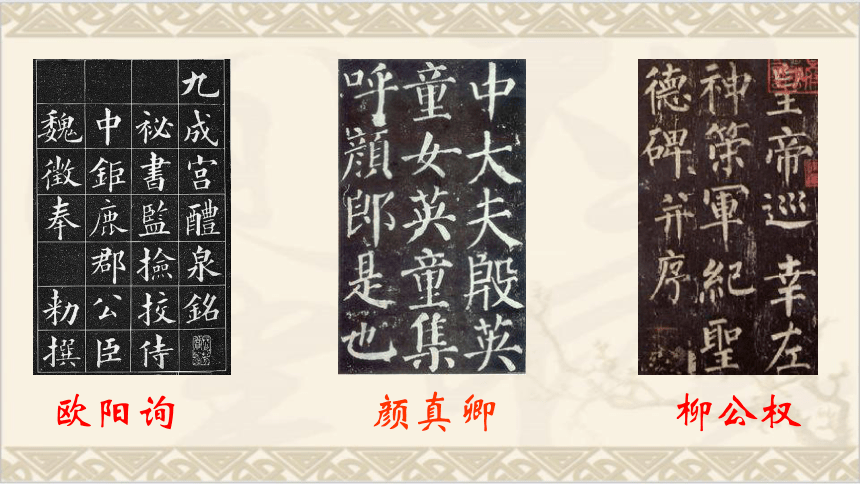 九成宫醴泉銘
祕書監撿挍侍
中鉅鹿郡公臣
魏徵奉 勑撰
中大夫殷英
童女英童集
呼顏郎是也
皇帝巡幸左
神策軍紀聖
德碑并序
欧阳询
颜真卿
柳公权